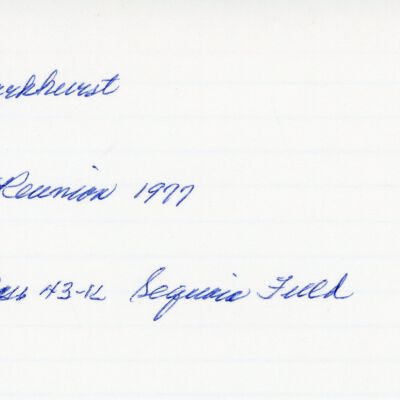 rkhurst
Reunion 1977
ass 43-K Sequoia Field